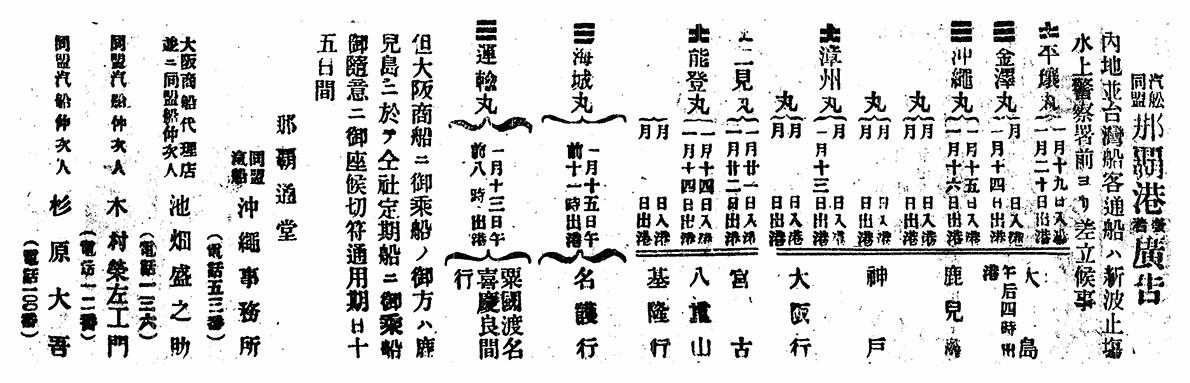 汽船同盟 那覇港発着広告
内地並台湾船客通船ハ新波止場
水上警察署前ヨリ差立候事
平壤丸 一月十九日入港 一月二十日出港
金澤丸 一月十四日出港
大島
午后四時出港
沖繩丸 一月十五日入港 一月十六日出港
鹿兒島
丸 月日入港 月日出港
丸 月日入港 月日出港
神戸
漳州丸 一月十三日入港
丸 月日入港 月日出港
大阪行
二見丸 一月廿一日入港 一月廿二日出港
宮古
能登丸 一月十四日入港 一月十四日出港
八重山
月日入港 月日出港
基隆行
海城丸 一月十五日午前十一時出港 名護行
運輸丸 一月十三日午前八時出港 粟國渡名喜慶良間行
但大阪商船ニ御乘船ノ御方ハ鹿
兒島ニ於テ仝社定期船ニ御乘船
御隨意ニ御座候切符通用期日十
五日間
那覇通堂
同盟汽船 沖繩事務所
(電話五三番)
大阪商船代理店並ニ同盟船仲次人 池畑盛之助
(電話一三六)
同盟汽船仲次人 木村榮左工門
(電話一一二番)
同盟汽船仲次人 杉原大吾
(電話一〇〇番)